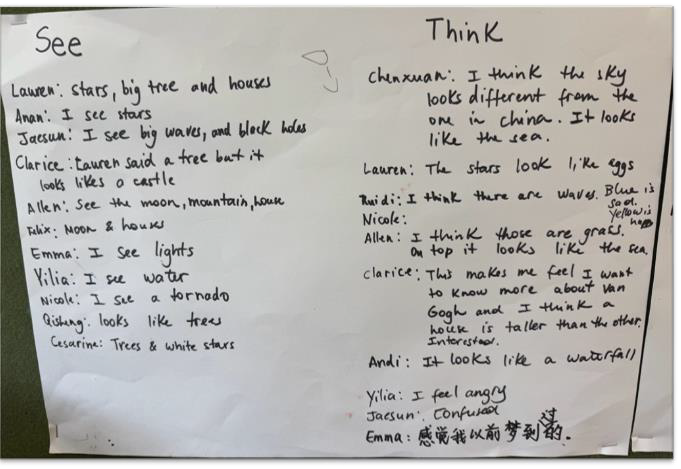 See
Lauren: stars, big tree and houses
Anan: I see stars
Jaesun: I see big waves, and block holes
Clarice: Lauren said a tree but it
looks likes a castle
Allen: See the moon, mountain, house
Felix: Moon & houses
Emma: I see lights
Yilia: I see water
Nicole: I see a tornado
Qisheng: looks like trees
Cesarine: Trees & white stars
Think
Chenxuan: I think the sky
looks different from the
one in china. It looks
like the sea.
Lauren: The stars look like eggs
Ruidi: I think there are waves. Blue is
sad.
Yellow is
happy
Nicole:
Allen: I think those are grass.
On top it looks like the sea.
Clarice: This makes me feel I want
to know more about Van
Gogh and I think a
house is taller than the other.
Interested.
Andi: It looks like a waterfall
Yilia: I feel angry
Jaesun: Confused
Emma: 感觉我以前梦到过的.